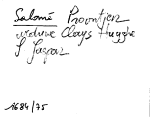 Salomé Provntjen
weduwe Clays Hugghe
S Jagoar
1684/75